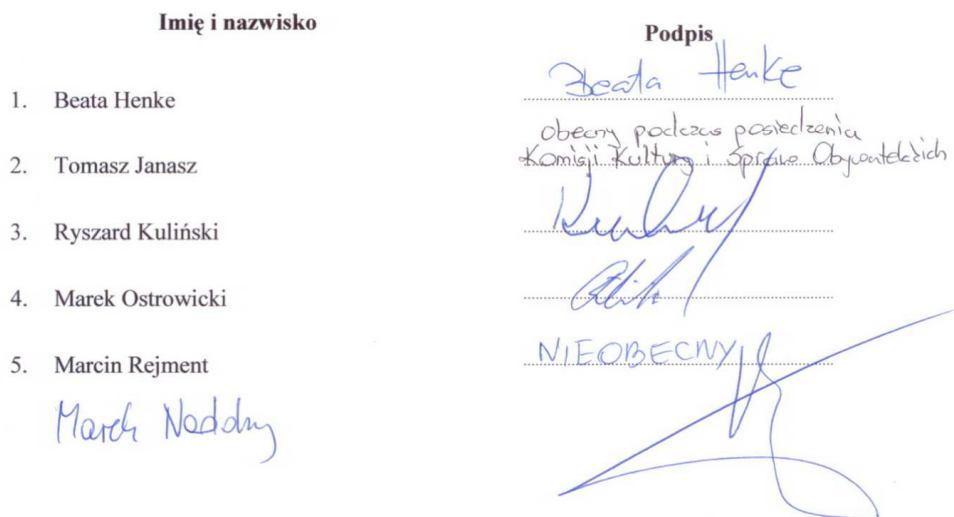 Imię i nazwisko
Podpis
1. Beata Henke
Beata Henke
2. Tomasz Janasz
obecny podczas posiedzenia
Komisji Kultury i Spraw Obywatelskich
3. Ryszard Kuliński
4. Marek Ostrowicki
5. Marcin Rejment
NIEOBECNY
Marek